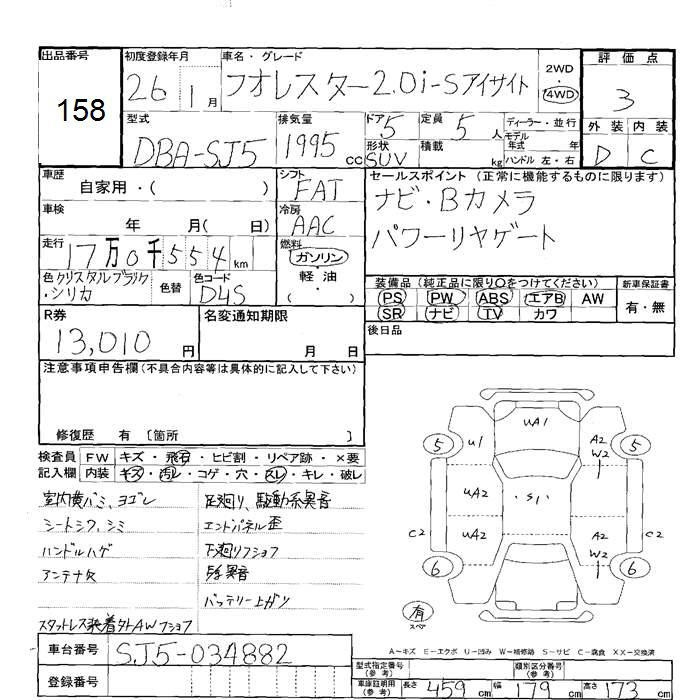 出品番号
158
初度登録年月
26 1月
車名・グレード
フオレスター2.0i-Sアイサイト
2WD
・
4WD
評価点
3
外装 内装
D C
型式
DBA-SJ5
排気量
1995 cc
ドア 5
形状
SUV
定員 5 人
積載 kg
ディーラー・並行
モデル
年式 年
ハンドル 左・右
車歴
自家用・( )
シフト
FAT
セールスポイント (正常に機能するものに限ります)
ナビ・Bカメラ
パワーリヤゲート
車検
年 月( 日)
冷房
AAC
走行
17万0千554km
燃料
ガソリン
軽油
( ・ )
色 クリスタルブラック
・シリカ
色替
色コード
D4S
装備品 (純正品に限り○をつけてください)
PS PW ABS エアB AW
SR ナビ TV カワ
新車保証書
有・無
R券
13,010円
名変通知期限
月 日
後日品
注意事項申告欄 (不具合内容等は具体的に記入して下さい)
修復歴 有 〔箇所 〕
検査員
記入欄
FW キズ・飛石・ヒビ割・リペア跡・×要
内装 キズ・汚レ・コゲ・穴・スレ・キレ・破レ
室内傷バミ、ヨゴレ
シートシワ、シミ
ハンドルハゲ
アンテナ欠
スタットレス装着外AWフショク
足廻り、駆動系異音
エンドパネル歪
下廻リフショク
異音
バッテリー上ガリ
UA1
5 U1 A2 W2 1 5
UA2 ・S1・
C2 UA2 A2 W2 1 C2
6 6
有
スペア
A-キズ E-エクボ U-凹み W-補修跡 S-サビ C-腐食 XX-交換済
車台番号
SJ5-034882
登録番号
型式指定番号
(参考)
類別区分番号
(参考)
車庫証明用
(参考)
長さ 459 cm 幅 179 cm 高さ 173 cm